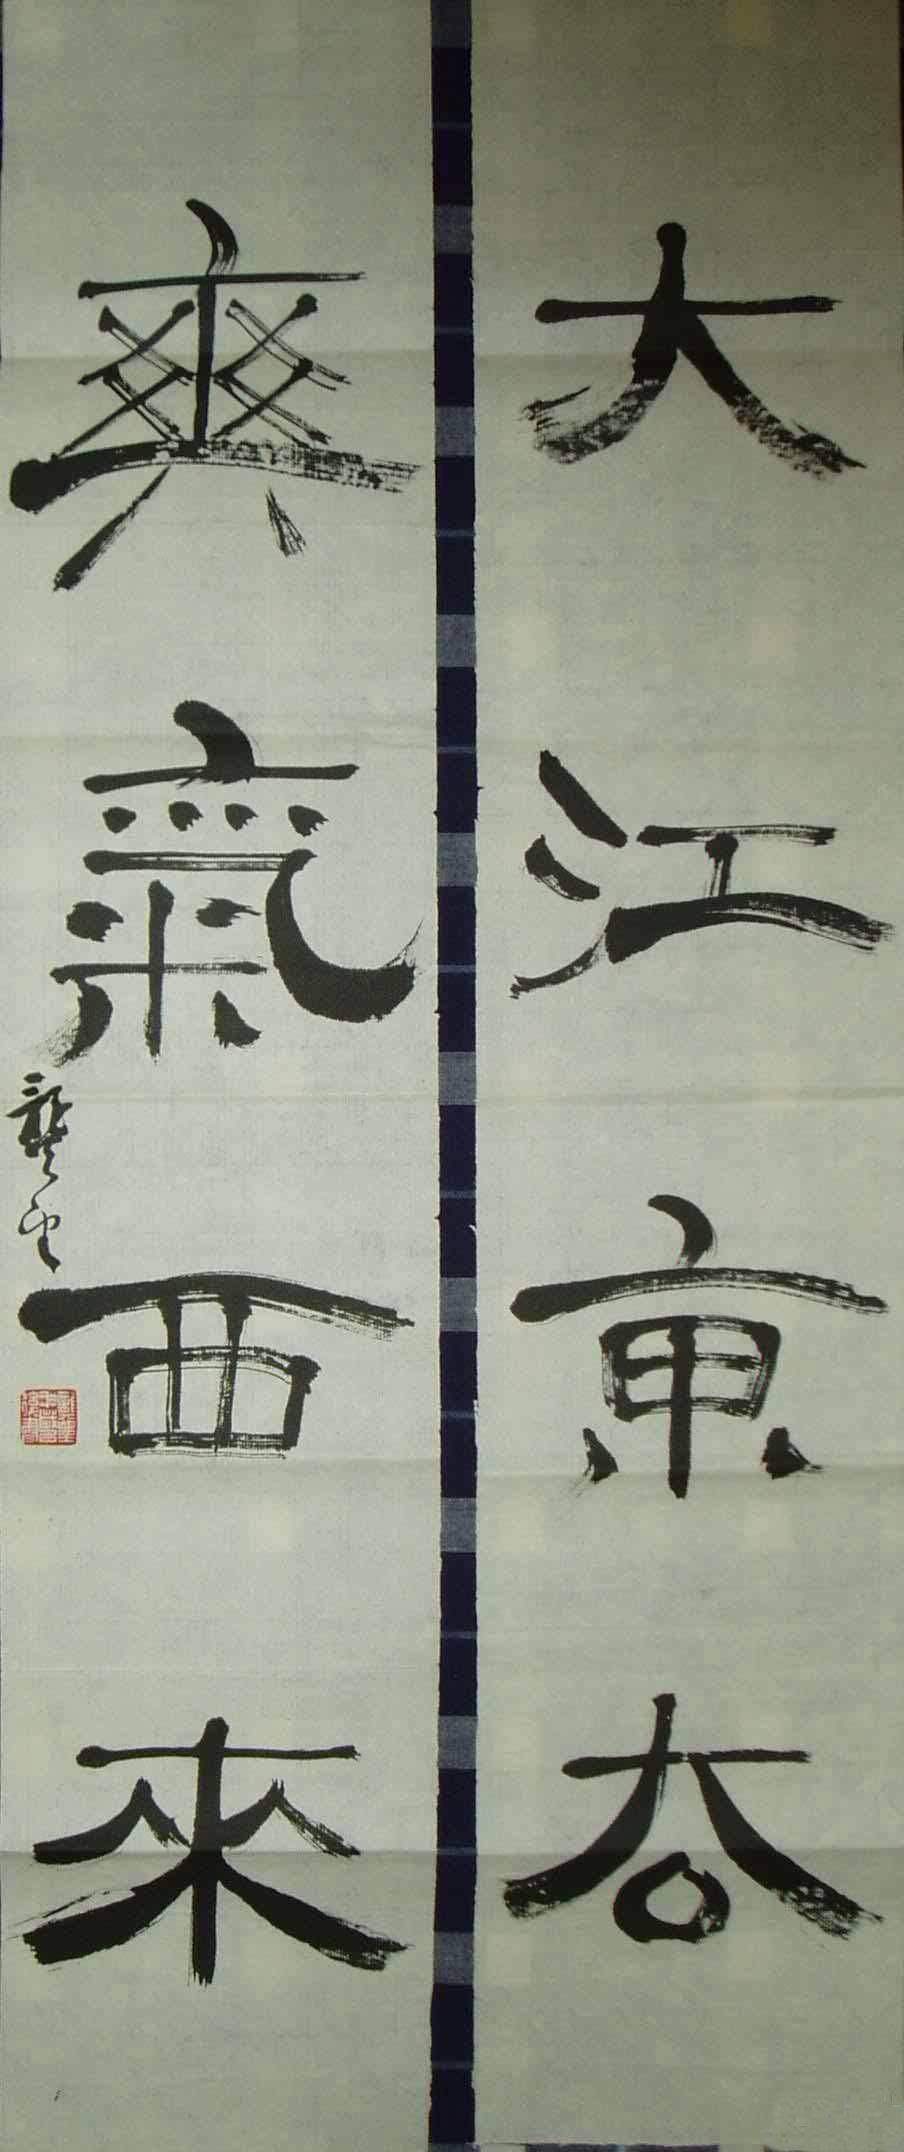 大江東去
爽氣西來
龔望